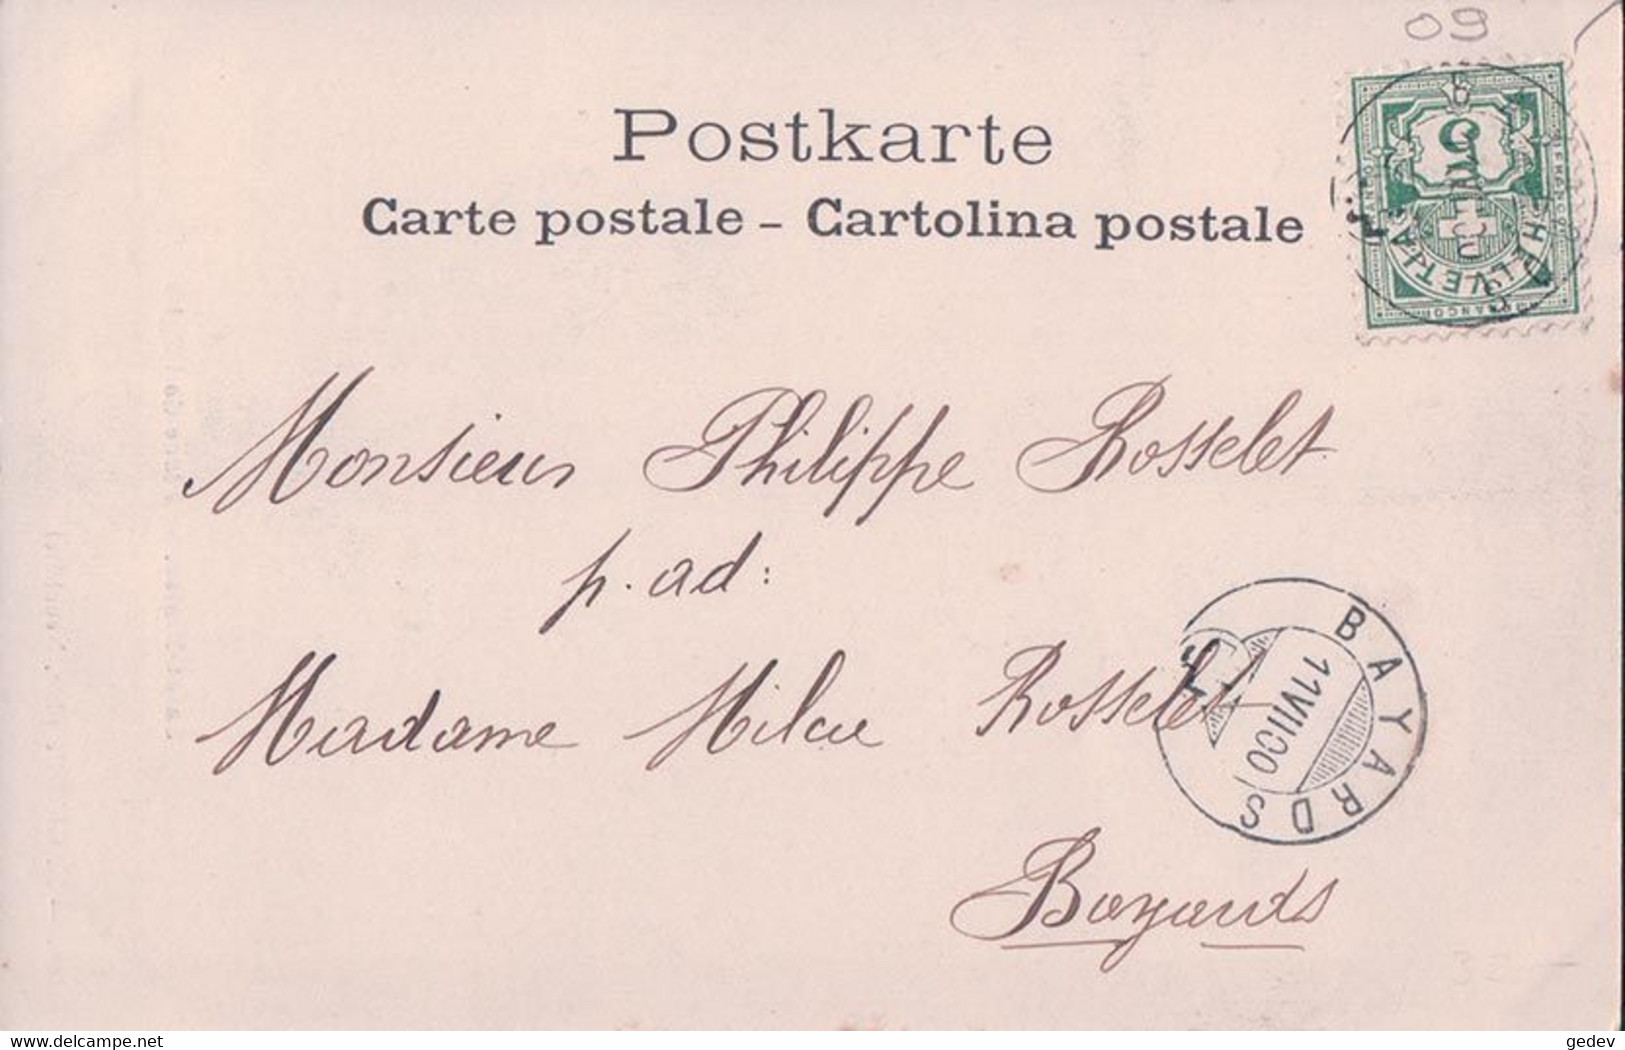 09
Postkarte
Carte postale – Cartolina postale
5
HELVETIA
FRANCO
Monsieur Philippe Rosselet
p. ad:
Madame Rosselet
BAYARDS
11 VII 00
Bayards
www.delcampe.net
gedev